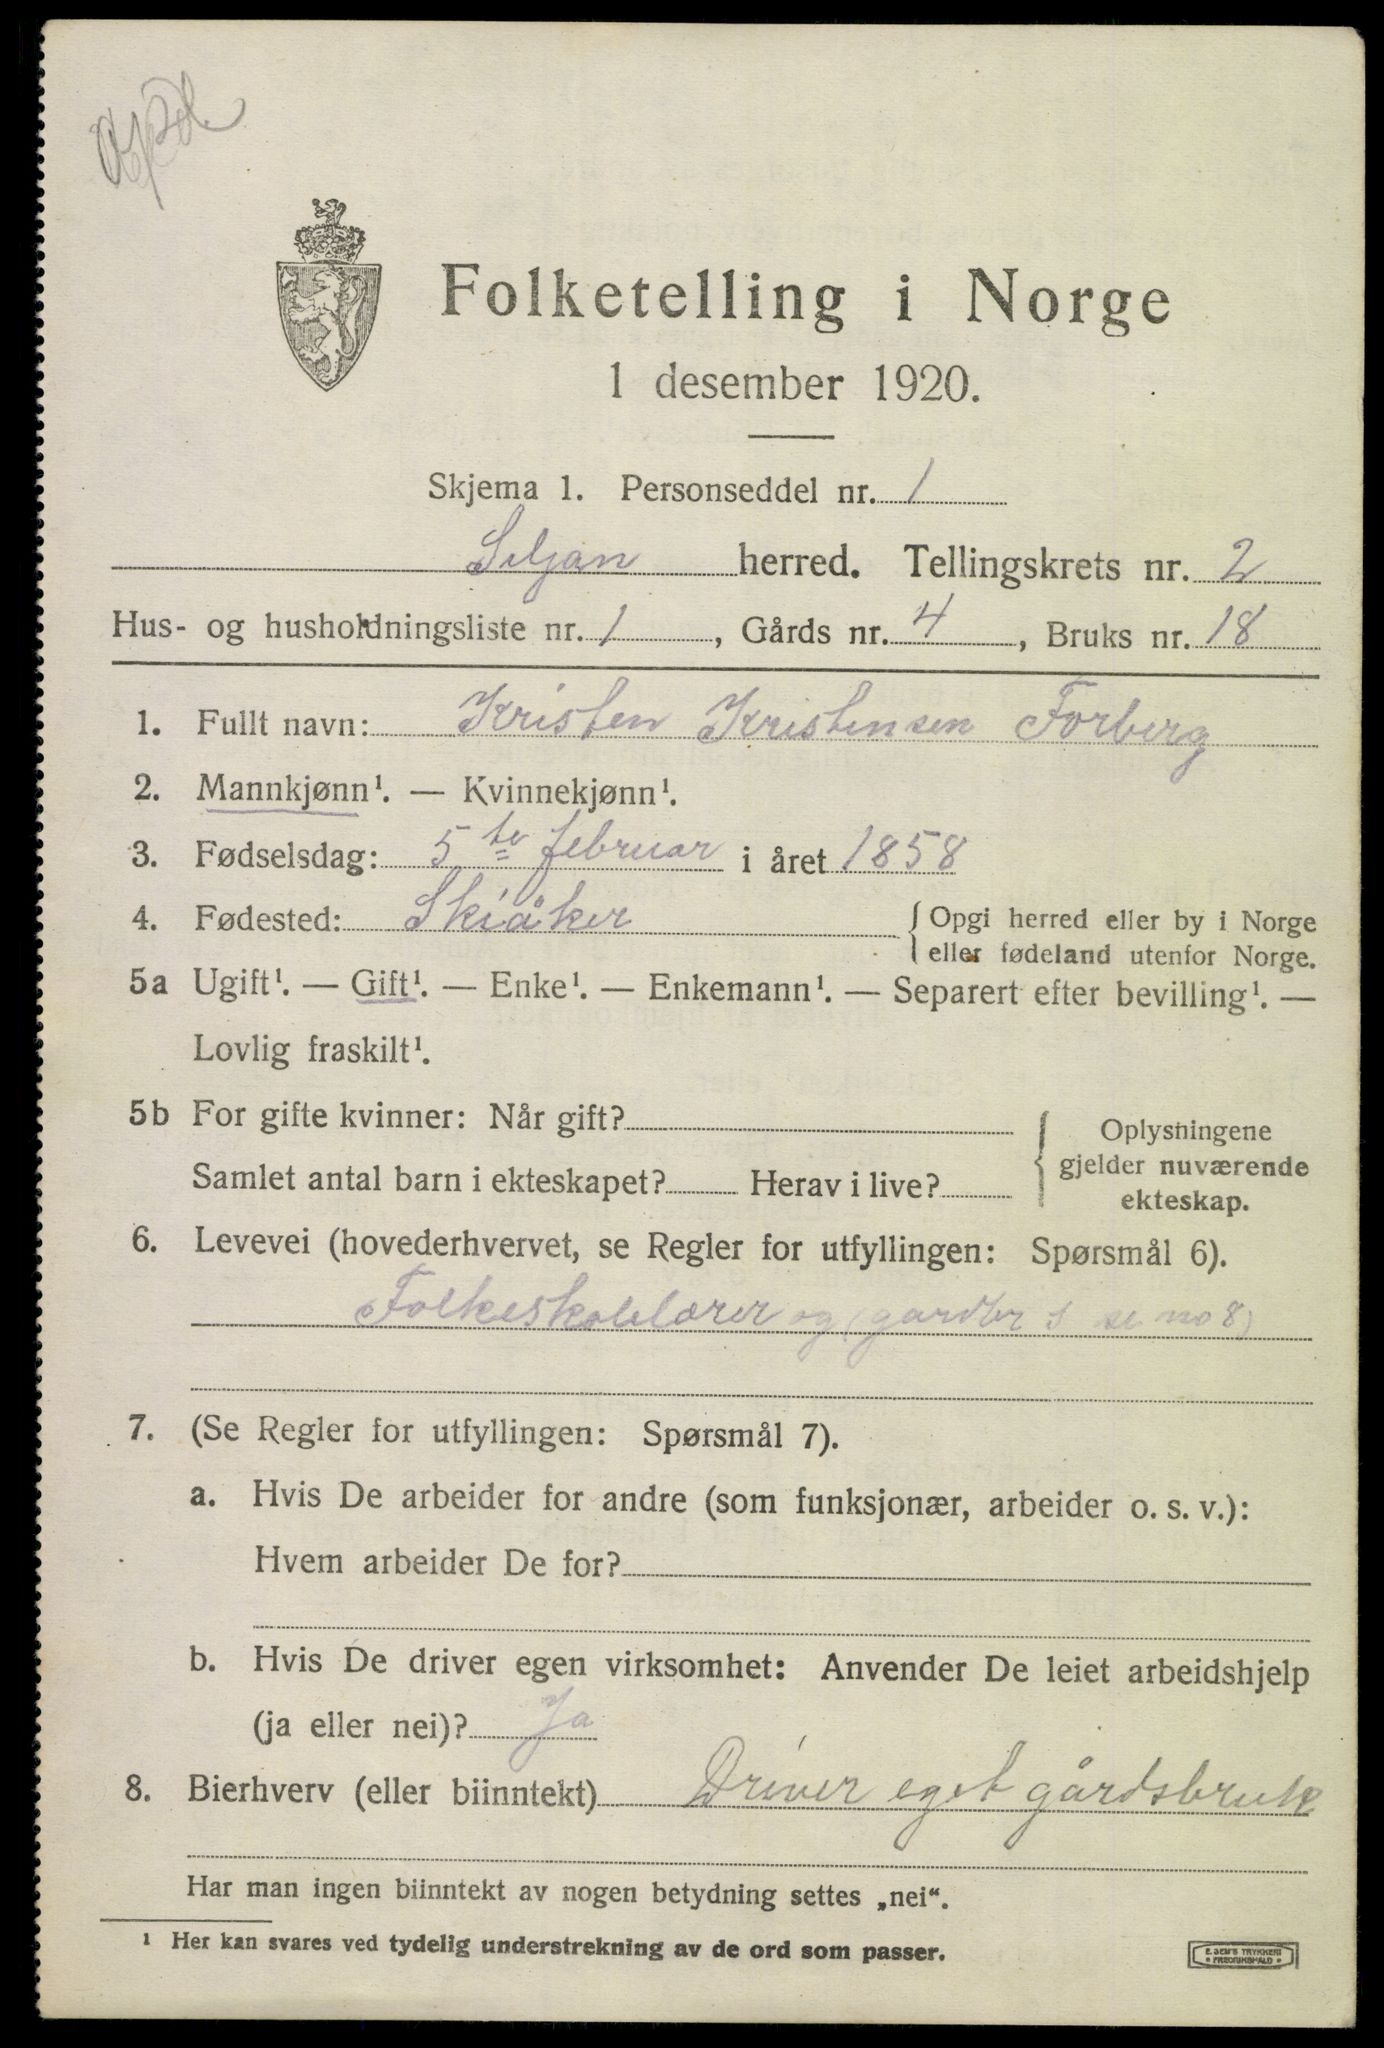 Folketelling i Norge
1 desember 1920.
Skjema 1. Personseddel nr. 1
Siljan herred. Tellingskrets nr. 2
Hus- og husholdningsliste nr. 1, Gårds nr. 4, Bruks nr. 18
1. Fullt navn: Kristen Kristensen Forberg
2. Mannkjønn¹. — Kvinnekjønn¹.
3. Fødselsdag: 5te februar i året 1858
4. Fødested: Skiåker { Opgi herred eller by i Norge
eller fødeland utenfor Norge.
5a Ugift¹. — Gift¹. — Enke¹. — Enkemann¹. — Separert efter bevilling¹. —
Lovlig fraskilt¹.
5b For gifte kvinner: Når gift?
Samlet antal barn i ekteskapet? Herav i live?
{ Oplysningene
gjelder nuværende
ekteskap.
6. Levevei (hovederhvervet, se Regler for utfyllingen: Spørsmål 6).
Folkeskolelærer og (gardbr s se no 8)
7. (Se Regler for utfyllingen: Spørsmål 7).
a. Hvis De arbeider for andre (som funksjonær, arbeider o. s. v.):
Hvem arbeider De for?
b. Hvis De driver egen virksomhet: Anvender De leiet arbeidshjelp
(ja eller nei)? Ja
8. Bierhverv (eller biinntekt) Driver eget gårdsbruk
Har man ingen biinntekt av nogen betydning settes „nei“.
¹ Her kan svares ved tydelig understrekning av de ord som passer.
E. SEM'S TRYKKERI
• FREDRIKSHALD •